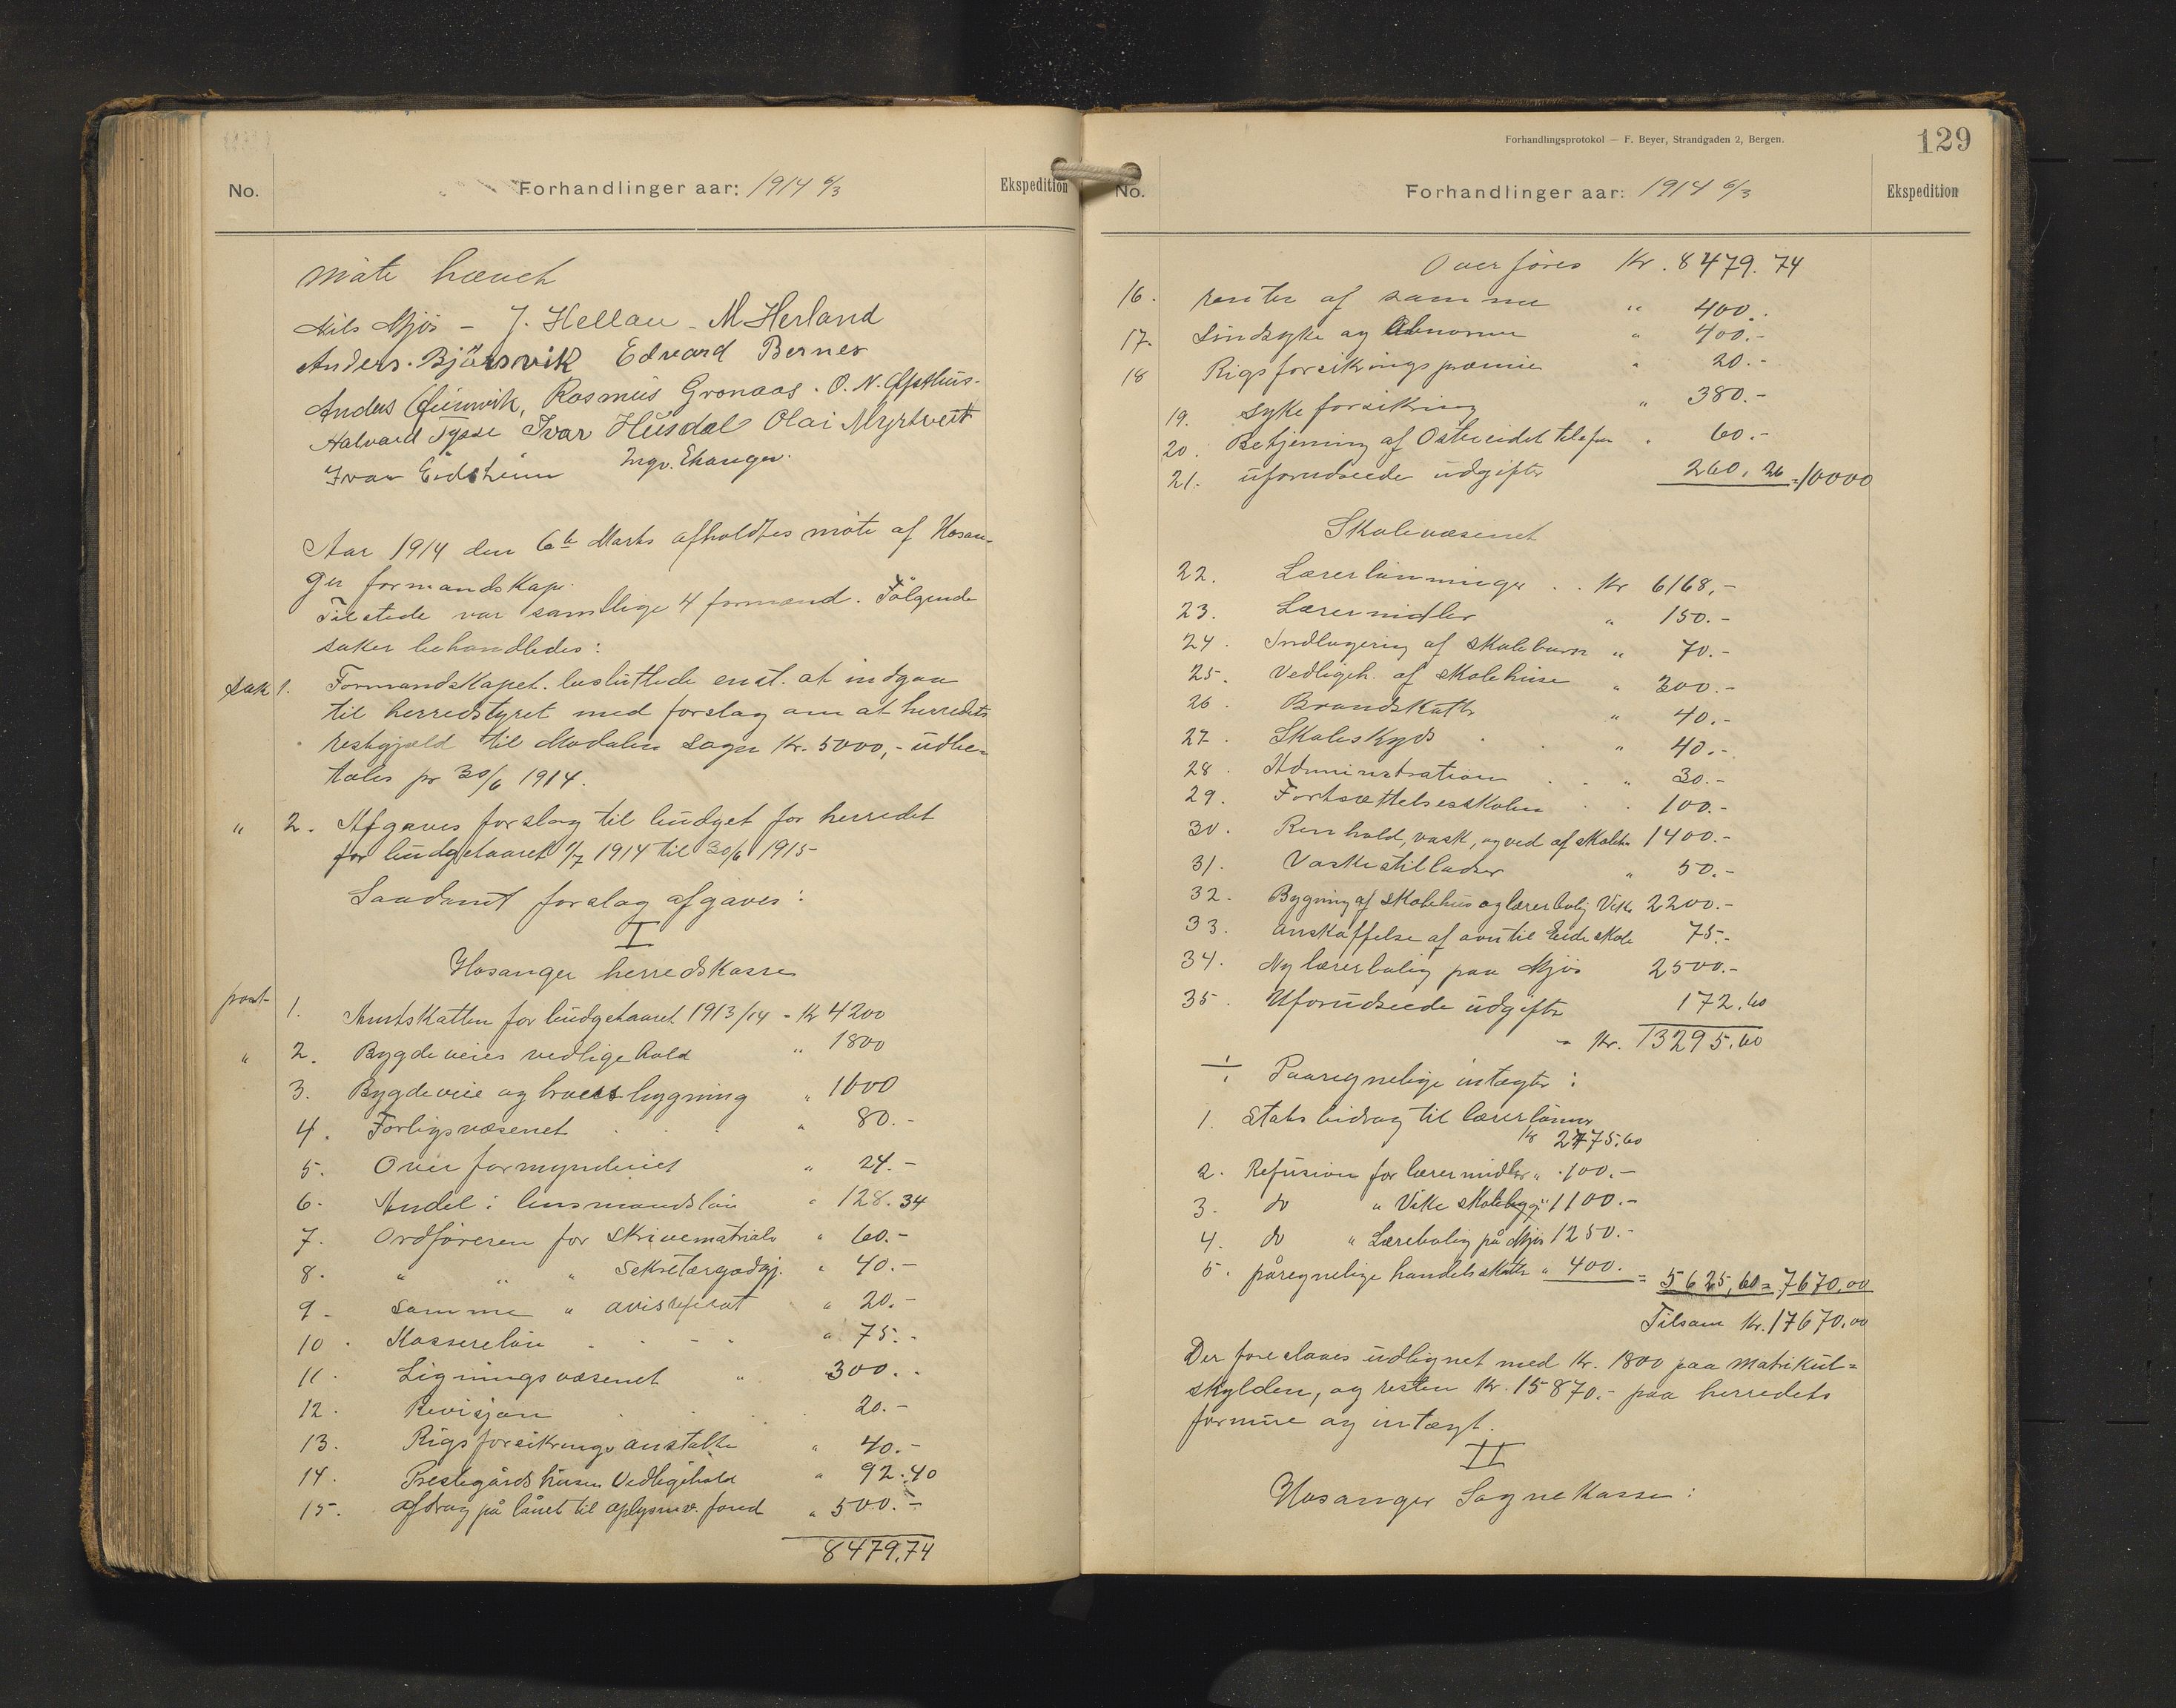 No. Forhandlinger aar: 1914 6/3 Ekspedition
møte hævet
Nils Mjøs - J. Hellau - M Herland
Anders. Bjørsvik Edvard Bernes
Anders Rasmus Gronaas. O. N.
Halvard Tysse Ivar Husdal Olai Myrtveit
Ivar Eidsheim Ingv. Ekanger.
Aar 1914 den 6te Marts afholdtes møte af Hosan-
ger formandskap.
Tilstede var samtlige 4 formænd. Følgende
saker behandledes:
sak 1. Formandskapet besluttede enst. at indgaa
til herredstyret med forslag om at herredets
restgjæld til Modalen sogn Kr. 5000,- udbe-
tales pr 30/6 1914.
" 2. Afgaves forslag til budget for herredet
for budgetaaret 1/7 1914 til 30/6 1915
Saadant forslag afgaves:
I
Hosanger herredskasse
post 1. Amtskatten for budgetaaret 1913/14 - Kr 4200
" 2. Bygdeveies vedligehold " 1800
3. Bygdeveie og broers bygning " 1000
4. Forligsvæsenet " 80.-
5. Over formynderiet " 24.-
6. Andel i lensmandsløn " 128.34
7. Ordføreren for skrivematrials " 60.-
8. " " " Sekretærgodgj. " 40.-
9 - samme " avisreferat " 20.-
10. Kassereløn " 75.-
11. Ligningsvæsenet " 300.-
12. Revisjon 20.-
13. Rigsforsikringsanstalten " 40.-
14. Prestegårdshusen Vedligehold " 92.40
15. Afdrag på lånet til oplysnv. fond " 500.-
8479,74
Forhandlingsprotokol — F. Beyer, Strandgaden 2, Bergen.
129
No. Forhandlinger aar: 1914 6/3 Ekspedition
Overføres Kr. 8479.74
16. renter af samme " 400.
17. Sindsyke og Abnorme " 400.-
18 Rigsforsikringspræmie " 20.-
19. sykeforsikring " 380.-
20. Betjening af Ostereidet telefon . 60.-
21. uforudseede udgifter 260,26 = 10000
Skolevæsenet
22. Lærerlønninger . . Kr 6168,-
23. Lærermidler " 150.-
24. Indlogering af skolebarn " 70.-
25. Vedligeh. af skolehuse " 300.-
26. Brandskatte " 40.-
27. Skoleskyds " 40.-
28. Administration " 30.-
29. Fortsættelsesskolen . 100.-
30. Renhold, vask, og ved af skoleh. 1400.-
31. Vaskestillads " 50.-
32. Bygning af skolehus og lærerbolig Vike 2200.-
33. anskaffelse af ovn til Eide skole 75.-
34. Ny lærerbolig paa Mjøs 2500.-
35. Uforudseede udgifter 172.60
- Kr. 13295,60
÷ Paaregnelige intægter:
1. Statsbidrag til lærerlønner
Kr 2775.60
2. Refusion for lærermidler " 100.-
3. do " Vike skolebygg. " 1100.-
4. do " Lærebolig på Mjøs 1250.-
5. påregnelige handelsskatte " 400. = 5625,60 = 7670,00
Tilsam Kr. 17670,00
Der foreslaaes udlignet med Kr. 1800 paa matrikul=
skylden, og resten Kr. 15870.- paa herredets
formue og intægt.
II
Hosanger Sognekasse: